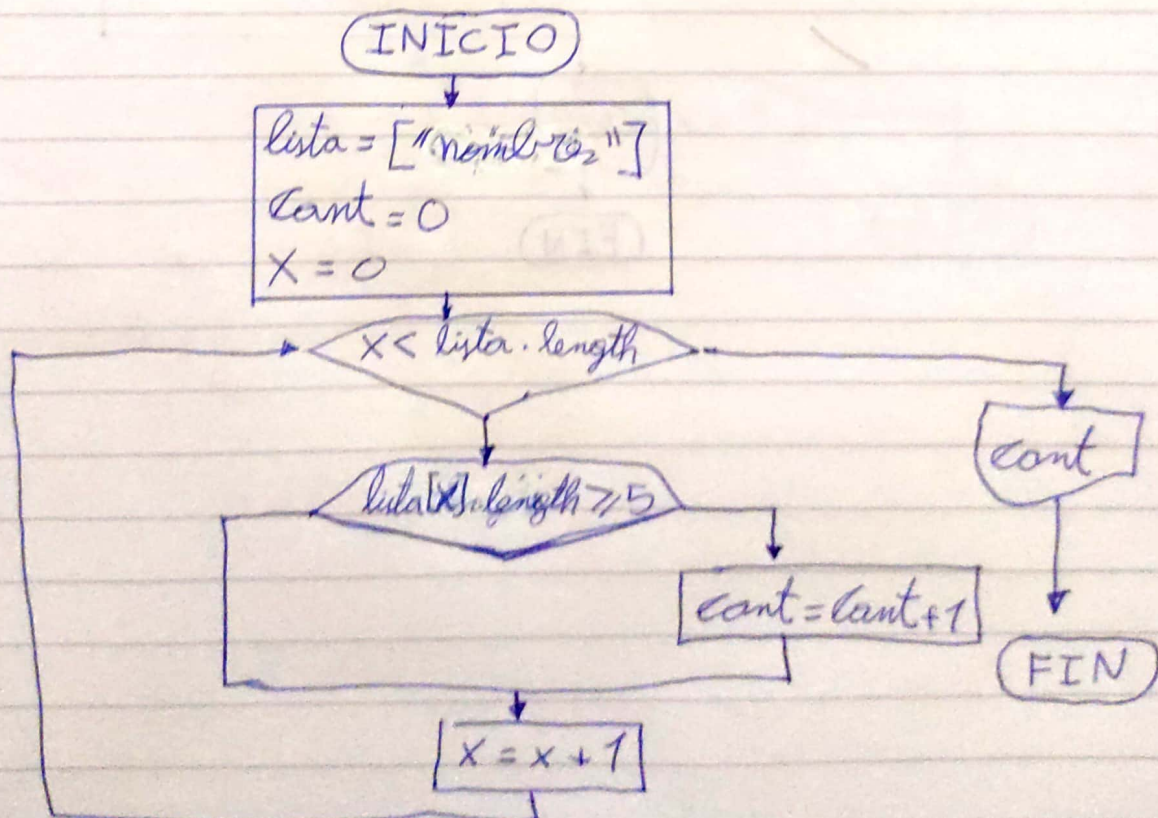 INICIO
lista = ["nombres"]
Cant = 0
X = 0
X < lista.length
cant
lista[X].length ≥ 5
cant = Cant + 1
FIN
X = x + 1